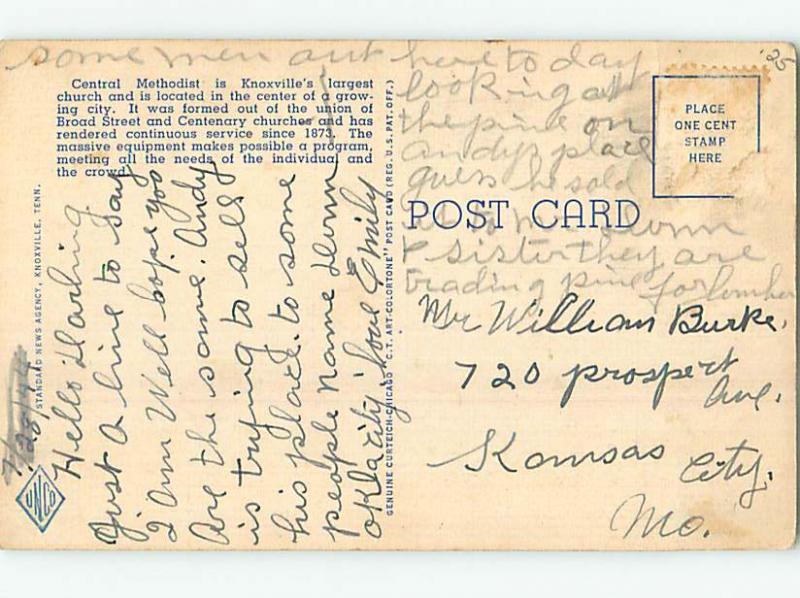 some men out here to day
looking at
the pine on
andys place
guess he sold
it to mr dunn
& sister they are
trading pine for lomber
'25
Central Methodist is Knoxville's largest
church and is located in the center of a grow-
ing city. It was formed out of the union of
Broad Street and Centenary churches and has
rendered continuous service since 1873. The
massive equipment makes possible a program,
meeting all the needs of the individual and
the crowd.
PLACE
ONE CENT
STAMP
HERE
POST CARD
Mr William Burke.
720 prospect
Ave.
Kansas City.
Mo.
Hello Darling
Just a line to say
I am Well hope you
Are the same. Andy
is trying to sell
his place. to some
people name dunn
okla city. love Emily
STANDARD NEWS AGENCY, KNOXVILLE, TENN.
GENUINE CURTEICH-CHICAGO "C.T. ART-COLORTONE" POST CARD (REG. U.S. PAT. OFF.)
UNCO